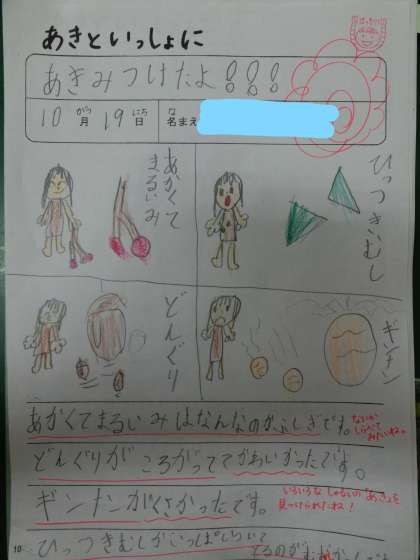 はっけん
あきと いっしょに
あきみつけたよ!!!
10 がつ 月 19 にち 日 な 名まえ
あかくて
まるいみ
ひっつきむし
どんぐり
ギンナン
あかくてまるいみはなんなのかふしぎです。
どんぐりが ころがっててかわいかったです。
ギンナンがくさかったです。
いろいろな
「あき」を
見つけられたね!
ひっつきむしがいっぱい
10